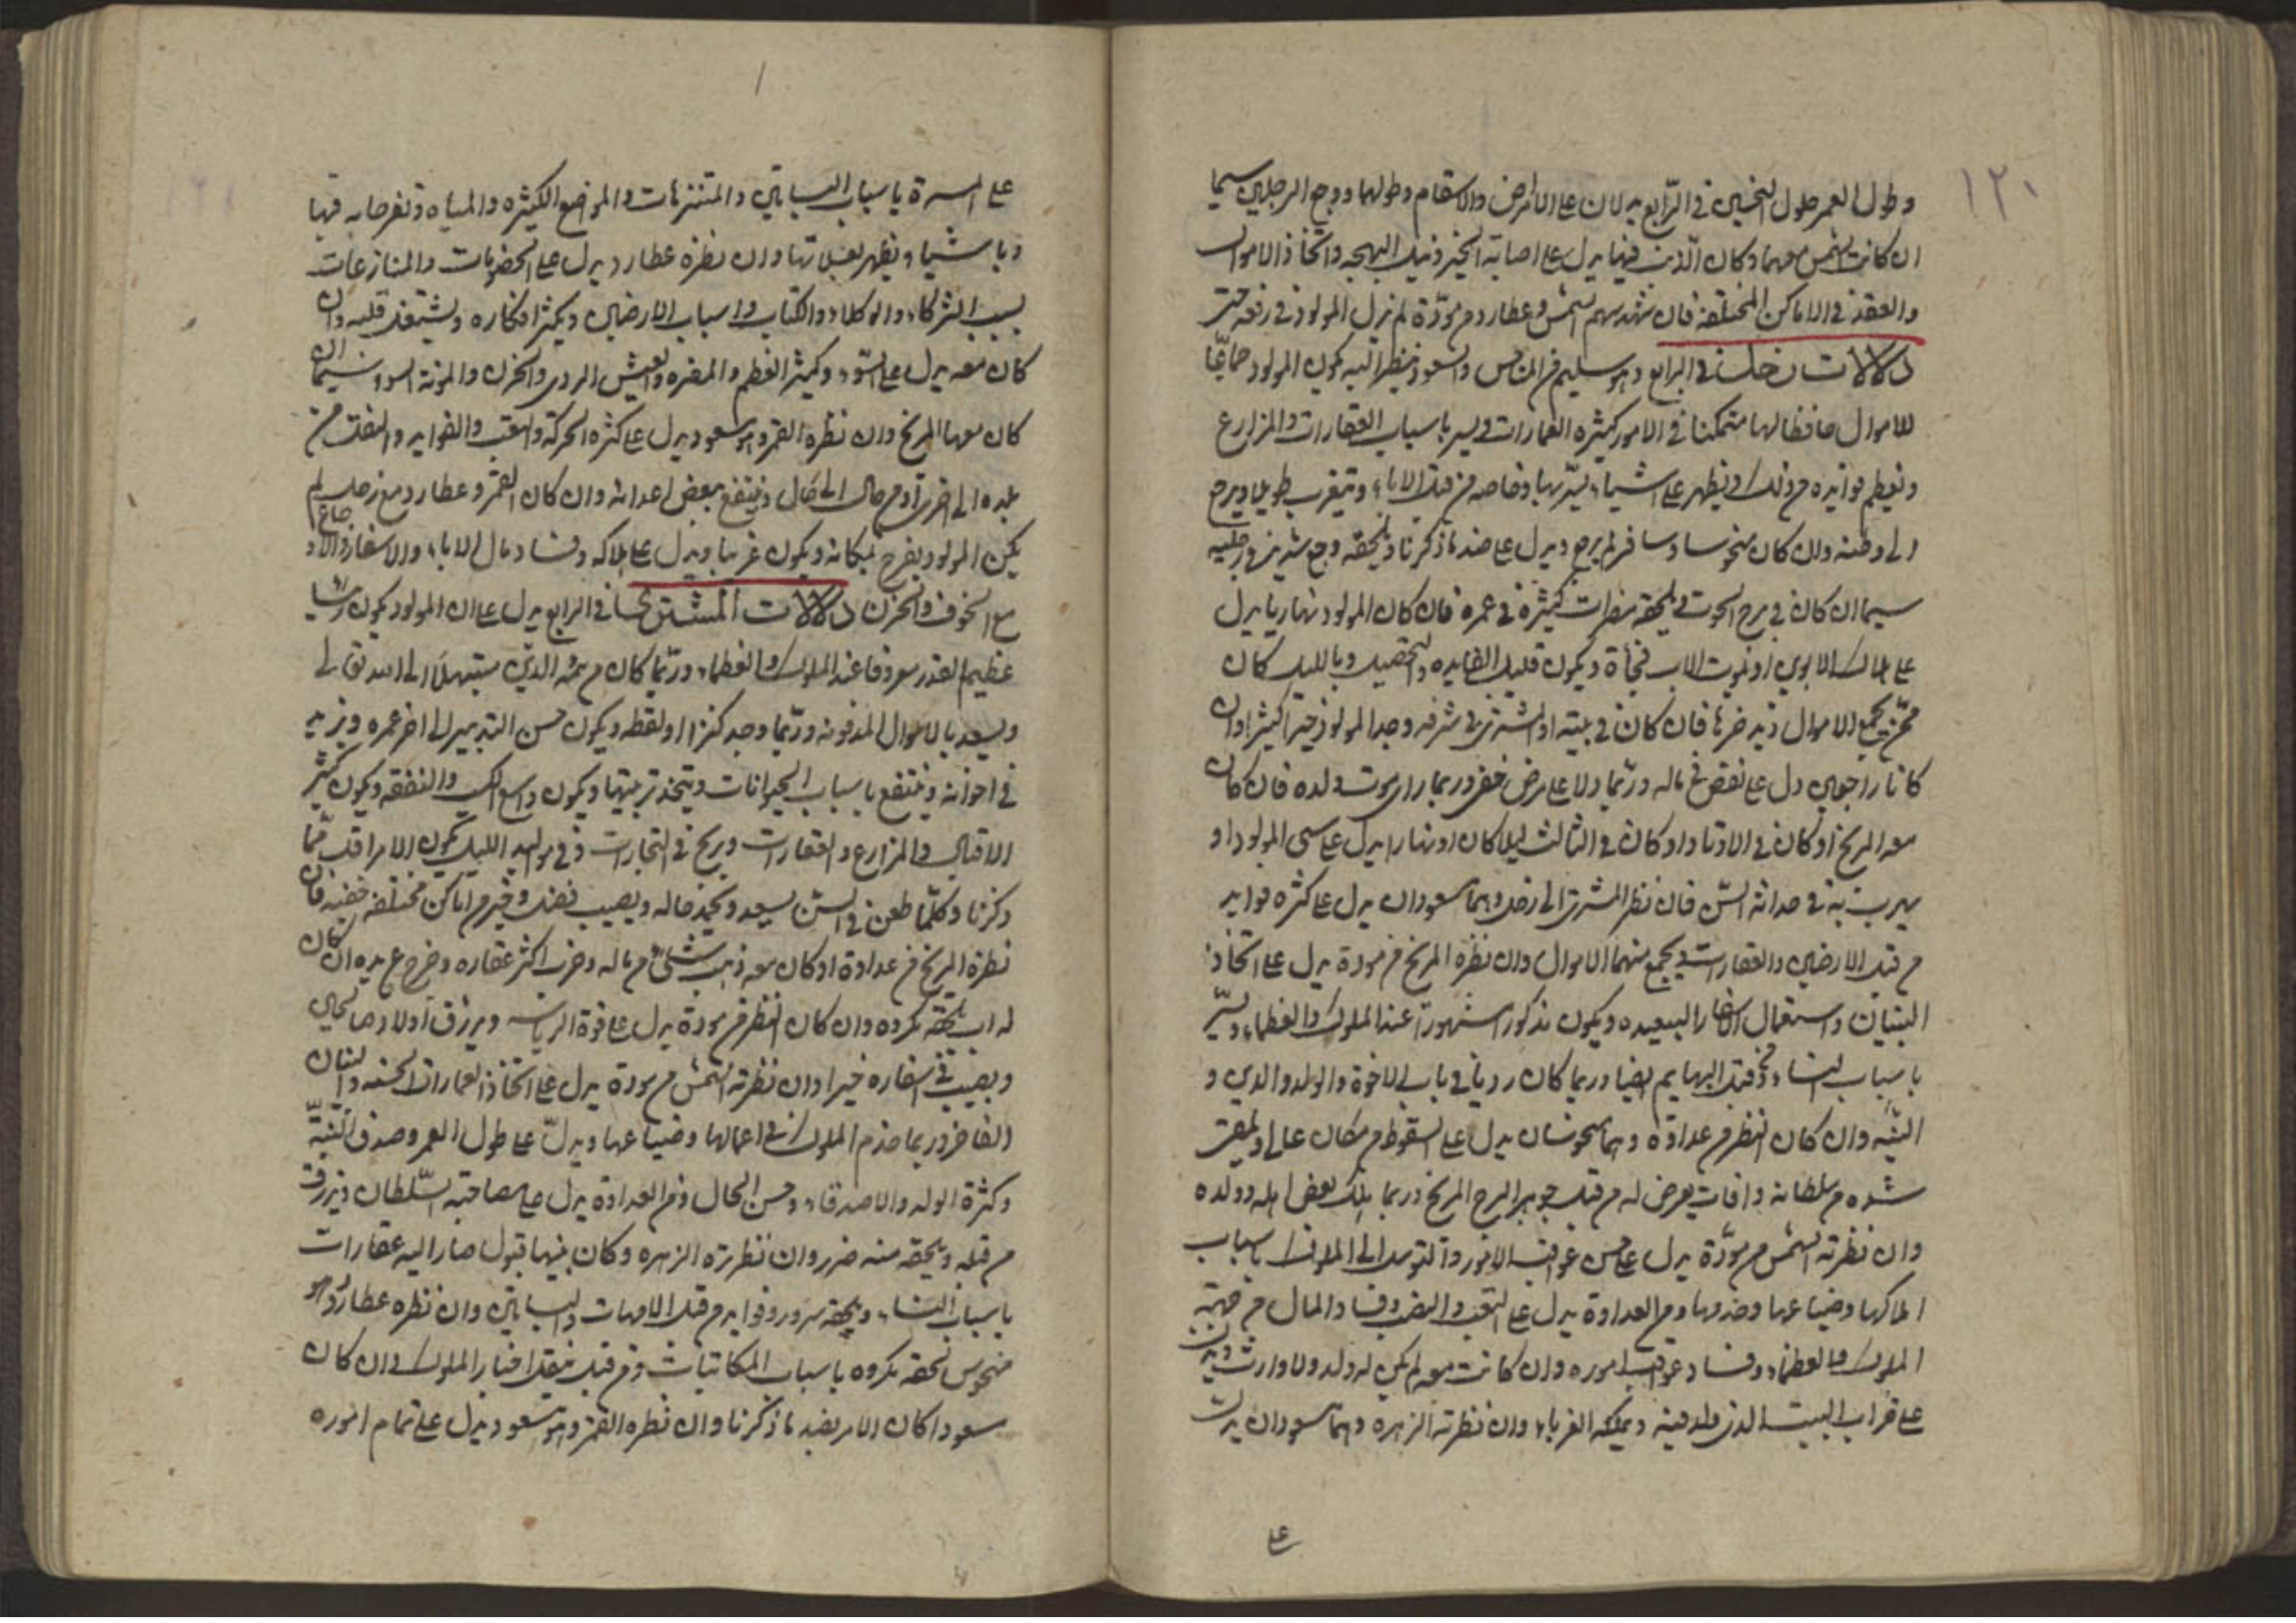 ١٢٠
وطول العمر حلول النحسين في الرابع يدلان على الامراض والاسقام وطولها ووجع الرجلين سيما
ان كانت الشمس معهما وكان الذنب فيها يدل على اصابة الخير ونيل البهجه واتخاذ الاموال
والعقد في الاماكن المختلفه فان شهد سهم الشمس وعطارد من مودّة لم يزل المولود في رفعه حتى
دلالات زحل في الرابع وهو سليم من المناحس والسعود ينظر اليه يكون المولود جامعًا
للاموال حافظا لها متمكنا في الامور كثيره العمارات ويسر باسباب العقارات والمزارع
وتعظم فوايده من ذلك ويظهر على اشياء يسرّ بها وخاصه من قبل الاباء ويتغرب طويلا ويرجع
الى وطنه وان كان منحوسا وسافر لم يرجع ويدل على ضد ما ذكرنا ويلحقه وجع شديد في رجليه
سيما ان كان في برج الحوت ويلحقه مضرات كثيرة في عمره فان كان المولود نهاريا يدل
على هلاك الابوين او يموت الاب فجأة ويكون قليل الفايده والتحصيل وبالليل كان
ممّن يجمع الاموال ويدخرها فان كان في بيته او المشتري في شرفه وجد المولود خيرا كثيرا وان
كانا راجعين دل على نقص في ماله وربّما دلا على مرض خفي وربما راى موت ولده فان كان
معه المريخ او كان في الاوتاد او كان في الثالث ليلا كان او نهارا يدل على سبي المولود او
يهرب به في حداثة السنّ فان نظر المشتري الى زحل وهما مسعودان يدل على كثره فوايد
من قبل الارضين والعقارات ويجمع منهما الاموال وان نظره المريخ من مودة يدل على اتخاذ
البنيان واستعمال الاسفار البعيده ويكون مذكورا مشهورا عند الملوك والعظماء ويسرّ
باسباب النساء ومن قبل البهايم ايضا وربما كان رديا في باب الاخوة والولد والدين و
النيّه وان كان النظر من عداوة وهما منحوسان يدل على السقوط من مكان عالي ويلقى
شده من سلطانه وافات يعرض له من قبل جوهر البرج المريخ وربما هلك بعض اهله وولده
وان نظرته الشمس من مودّة يدل على حسن عواقب الامور والتوسل الى الملوك باسباب
املاكها وضياعها وخدمها ومن العداوة يدل على التعب والنصب وفساد المال من جهة
الملوك والعظماء وفساد عواقب اموره وان كانت معه لم يكن له ولد ولا وارث ويدل
على خراب البيت الذي ولد فيه ويملكه الغرباء وان نظرته الزهره وهما مسعودان يدل
على
على المسرة باسباب البساتين والمتنزهات والمواضع الكثيره والمياه وتفرحا به فيها
وباشيا ويظهر لعلاتها وان نظره عطارد يدل على الخصومات والمنازعات
بسبب الشركاء والوكلاء والكتاب واسباب الارضين ويكثر افكاره ويشتغل قلبه وان
كان معه يدل على السوّء وكثير الغم والمضره والعيش الردي والحزن والموتة السوء سيما ان
كان معهما المريخ وان نظره القمر وهو مسعود يدل على كثره الحركة والتعب والفوايد والنقلة من
بلده الى اخرى او من حال الى حال وينتفع ببعض اعدائه وان كان القمر وعطارد مع زحل لم
يكن المولود يفرح بمكانه ويكون غريبا ويدل على هلاكه وفساد مال الاباء والاسفار والاوجاع
مع الخوف والحزن دلالات المشتري في الرابع يدل على ان المولود يكون رئيسا
عظيم القدر معروفا عند الملوك والعظماء وربّما كان من جهة الدين مبتهلا الى الله تعالى
ويسعد بالاموال المدفونه وربّما وجد كنزا او لقطه ويكون حسن التدبير الى اخر عمره ويزيد
في اخوانه وينتفع باسباب الحيوانات ويتخذ تربيتها ويكون واسع الكسب والنفقه ويكون كثير
الاقبال في المزارع والعقارات ويربح في التجارات وفي مواليد الليل يكون الامر اقل ممّا
ذكرنا وكلّما طعن في السن يسعد ويحمد حاله ويصيب فضل وخير من اماكن مختلفه خفيه فان
نظرة المريخ من عداوة او كان معه ذهب شئ من ماله وخرب اكثر عقاره وخرج عن يده ان كان
له اب يلحقه مكروه وان كان النظر من مودّة يدل على قوة الرياسه ويرزق اولادا صالحين
ويصيب في اسفاره خيرا وان نظرته الشمس من مودة يدل على اتخاذ العمارات الحسنه والبنيان
الفاخر وربما خدم الملوك في اعمالها وضياعها ويدلّ على طول العمر وصدق النيّة
وكثرة الولد والاصدقاء وحسن الحال ومن العداوة يدل على مصاحبة السّلطان ويرزق
من قبله ويلحقه منه ضرر وان نظرته الزهره وكان بينهما قبول صار اليه عقارات
باسباب النساء ويلحقه سرور وفوايد من قبل الامهات والبساتين وان نظره عطارد وهو
منحوس لحقه مكروه باسباب المكاتبات ومن قبل نقل اخبار الملوك وان كان
سعودا كان الامر بضد ما ذكرنا وان نظره القمر وهو مسعود يدل على تمام اموره